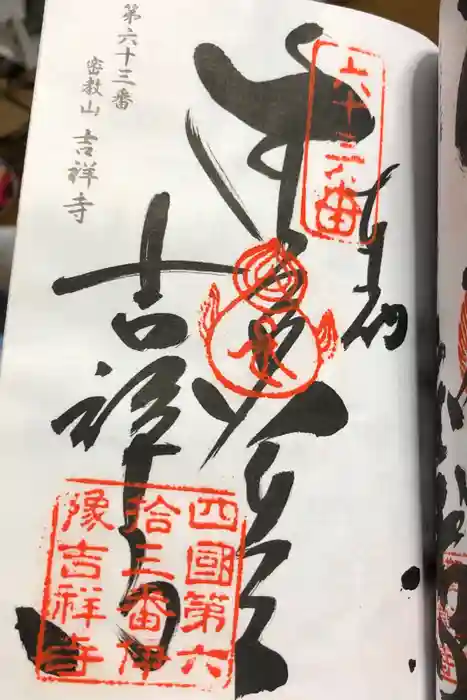 第六十三番
密教山 吉祥寺
六十三番
奉納
吉祥寺
四國第六
拾三番伊
豫吉祥寺